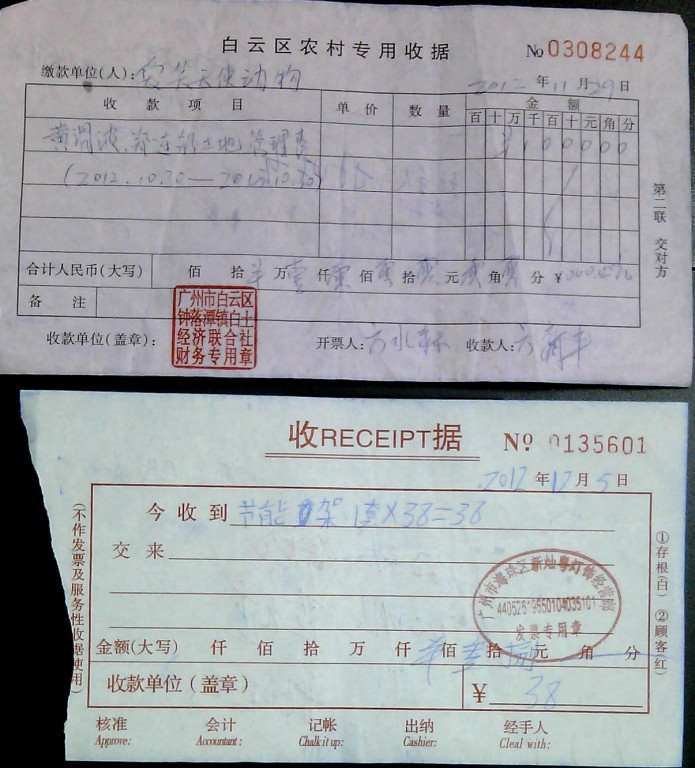 白云区农村专用收据
No 0308244
缴款单位(人):
天使动物
2012 年 11 月 29 日
收款项目 单价 数量 金额
百 十 万 千 百 十 元 角 分
土地管理费
羊 1 0 0 0 0 0
(2012.10.30—
合计人民币(大写) 佰 拾 万 壹 仟 零 佰 零 拾 零 元 零 角 零 分 ¥
备注
广州市白云区
钟落潭镇白土
经济联合社
财务专用章
收款单位(盖章): 开票人: 收款人:
第二联 交对方
收RECEIPT据
No 0135601
2012 年 12 月 5 日
今收到 节能 架 1套×38=38
交来
广州市海珠区新灿粤灯饰经营部
44052619650104035101
发票专用章
金额(大写) 仟 佰 拾 万 仟 佰 拾 元 角 分
收款单位(盖章) ¥ 38
核准 会计 记帐 出纳 经手人
Approve: Accountant: Chalk it up: Cashier: Cleal with:
(不作发票及服务性收据使用)
①存根(白) ②顾客(红)